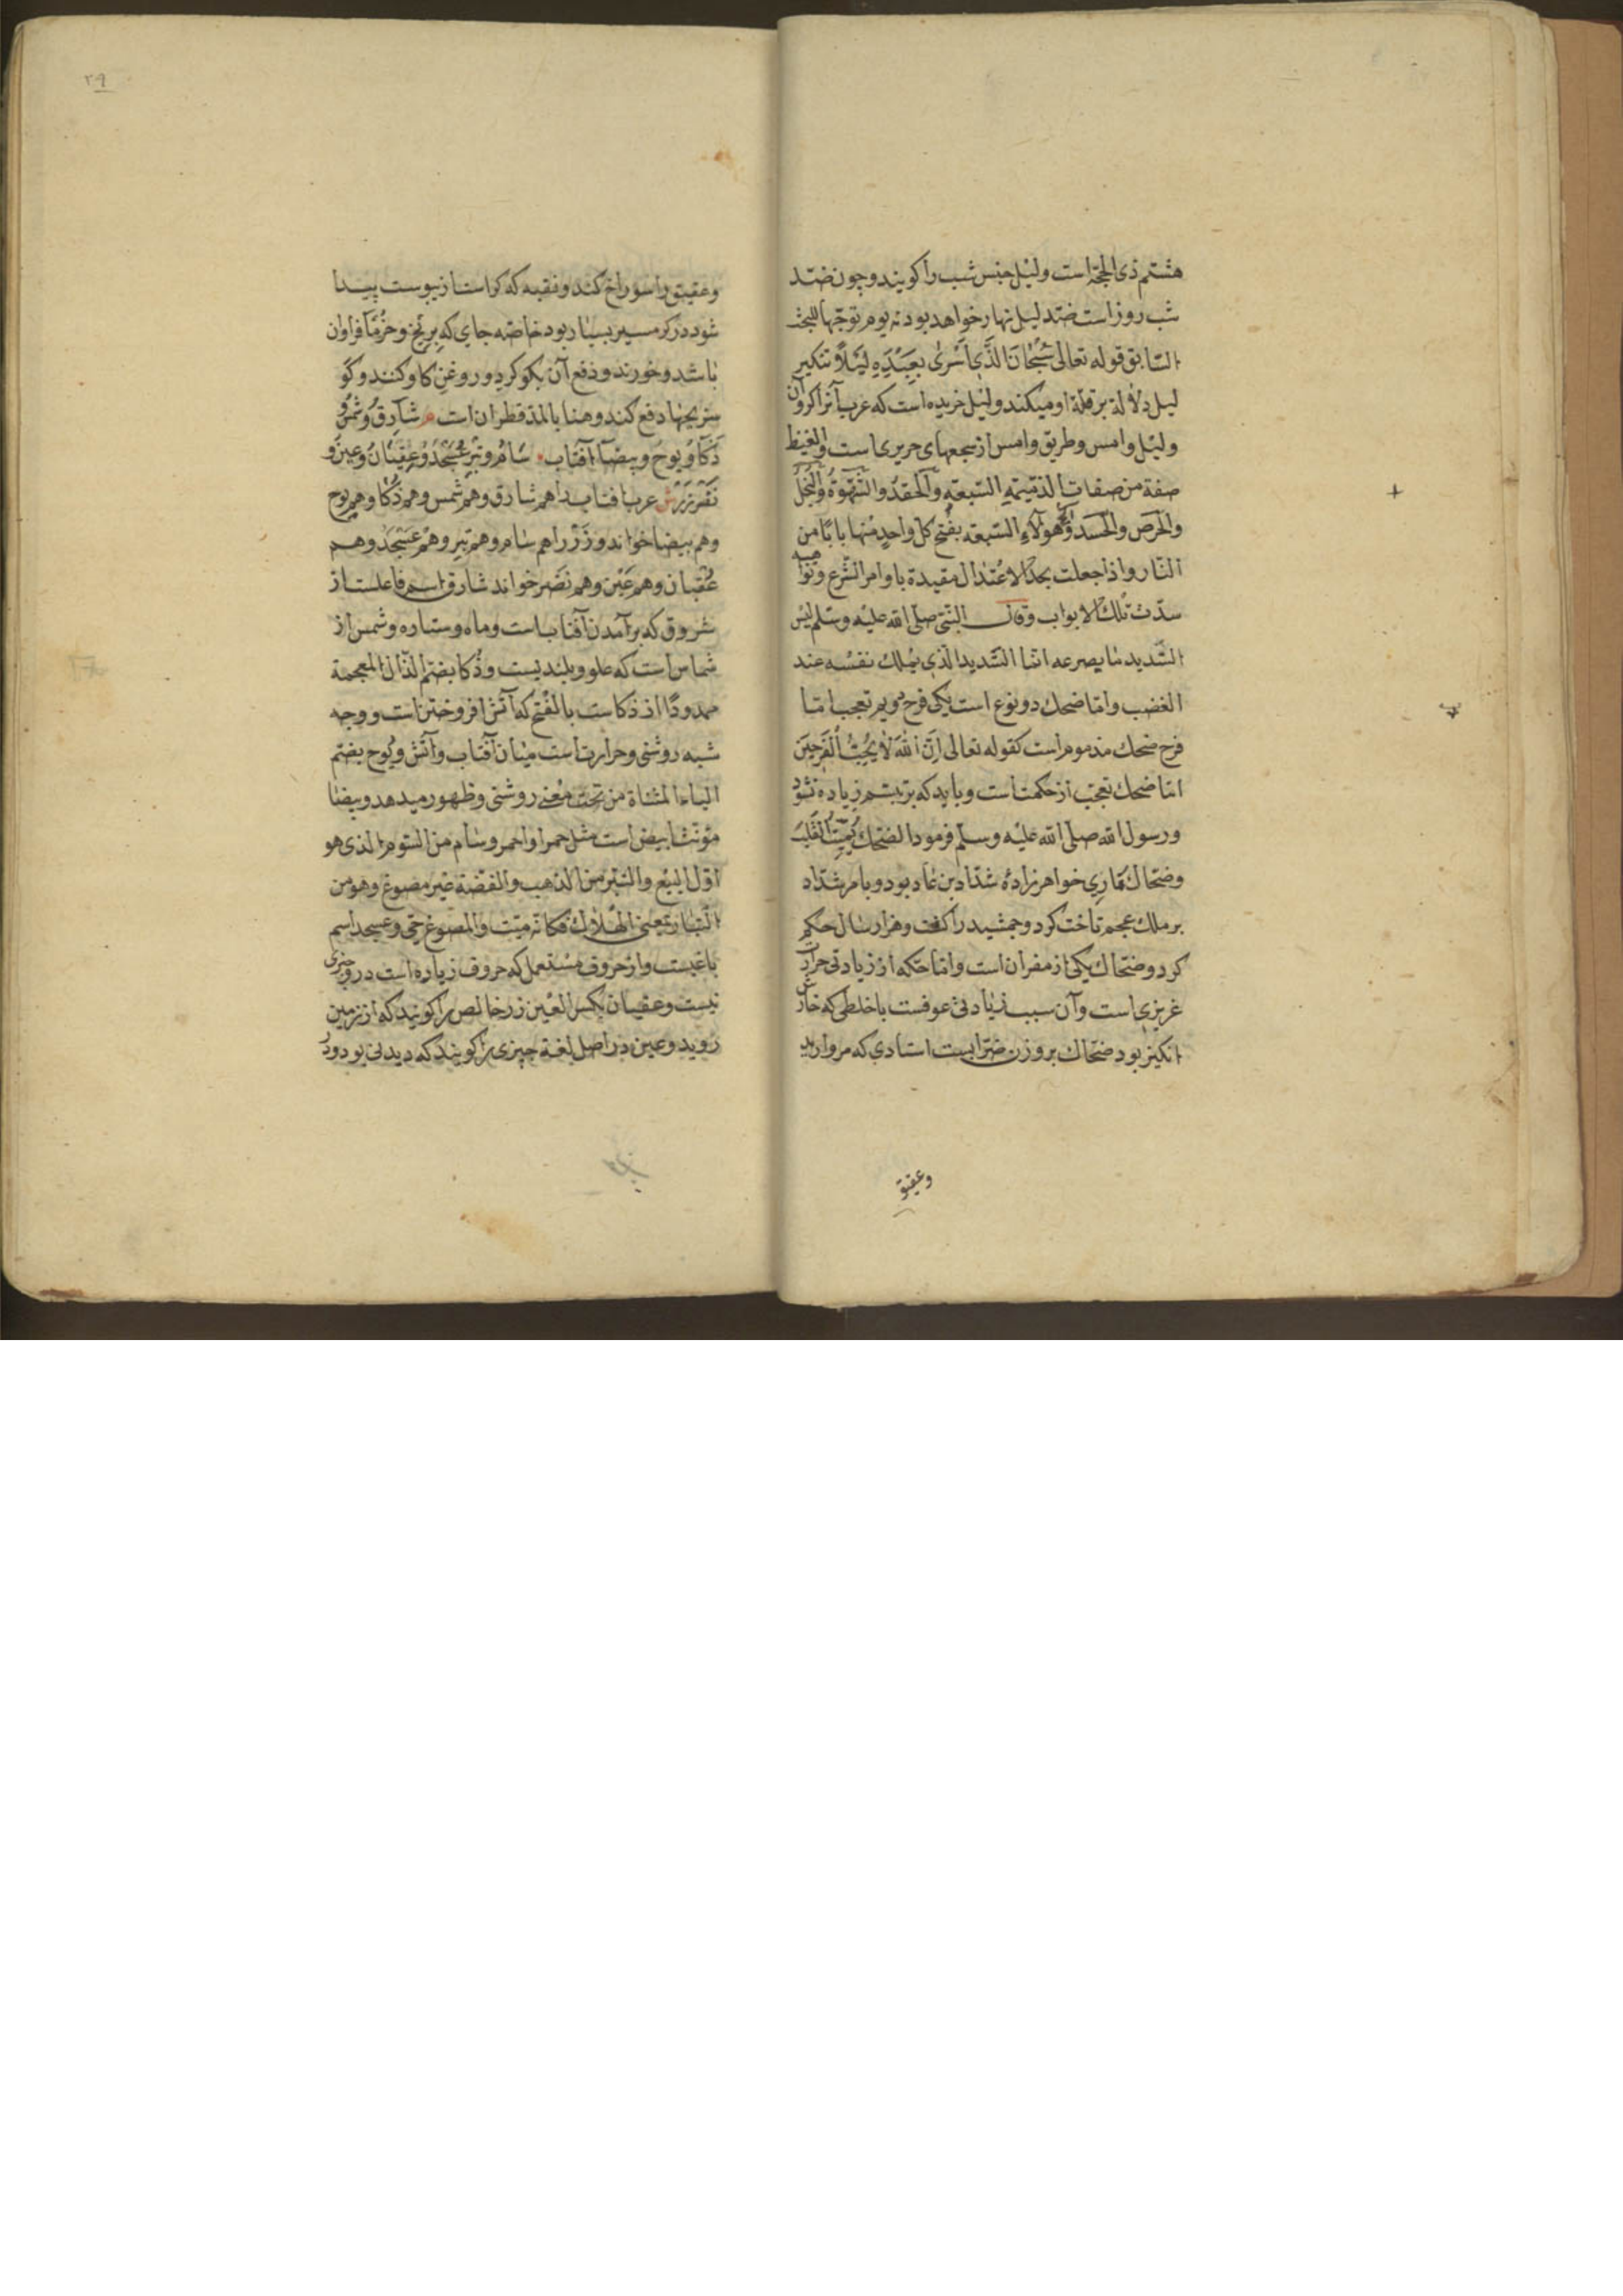 هشتم ذی الحجّه است ولیل جنس شب را کویند و چون ضدّ
شب روز است ضدّ لیل نهار خواهد بود نه یوم توجّها للبحث
السّابق قوله تعالی سُبْحَانَ الَّذِی اَسْرَی بِعَبْدِهِ لَیْلًا تنکیر
لیل دلالة بر قلّة او میکند ولیل خربزه است که عرب آنرا کروان
ولیل وامس وطریق وامس از سجعهای حریری است والغیظ
صفة من صفات الذّمیمه السّبعة والحقد والشّهوة والبخل
والحرص والحسد وهولاء السّبعة یفتح کل واحد منها بابًا من
النّار واذا جعلت بحدّ الاعتدال مقیدة باوامر الشّرع ونواهیه
سدّت تلک الابواب وقال النّبی صلّی الله علیه وسلّم لیس
الشّدید من یصرعه انّما الشّدید الّذی یملک نفسه عند
الغضب وامّا ضحک دو نوع است یکی فرح دویم تعجب امّا
فرح ضحک مذموم است کقوله تعالی اِنَّ اللهَ لَا یُحِبُّ الْفَرِحِینَ
امّا ضحک تعجب از حکمت است وباید که بر تبسّم زیاده نشود
ورسول الله صلّی الله علیه وسلّم فرمود الضّحک یُمِیتُ الْقَلْبَ
وضحّاک ماری خواهرزاده شدّاد بن عاد بود وبامر شدّاد
بر ملک عجم تاخت کرد وجمشید را کشت وهزار سال حکم
کرد وضحّاک یکی از مفسران است وامّا حکّه از زیادتی حرارت
غریزی است وآن سبب زیادتی عوفست باخلطی که خارش
انکیز بود ضحّاک بر وزن ضرّابست استادی که مروارید
وعقیق
۲۹
وعقیق را سوراخ کند وفقبه که کراست از یبوست پیدا
شود در کرمسیر بسیار بود خاصّه جای که برنج وخرما فراوان
باشد وخورند ودفع آن بکوکرد وروغن کاو کنند وکو
سریحها دفع کند وهنا بالمدّ قطران است م شارق وشمس و
ذکاو یوح وبیضا آفتاب سام وتبر عسجد وعقیان وعین و
نضر زر ش عرب افتاب را هم شارق وهم شمس وهم ذکا وهم یوح
وهم بیضا خوانند وزر را هم سام وهم تبر وهم عسجد وهم
عقیان وهم عین وهم نضر خوانند شارق اسم فاعلست از
شروق که برآمدن آفتاب است وماه وستاره وشمس از
شماس است که علو وبلندیست وذکا بضم الذّال المعجمة
ممدودًا از ذکاست بالفتح که آتش افروختن است ووجه
شبه روشنی وحرارت است میان آفتاب وآتش ویوح بضم
الیاء المثناة من تحت معنی روشنی وظهور میدهد وبیضا
مؤنّث ابیض است مثل حمرا واحمر وسام من السّوم الذی هو
اوّل البیع والتبر من الذهب والفضّة غیر مصوغ وهو من
التّبار بمعنی الهلاک فکانّه میّت والمصوغ حیّ وعسجد اسم
باعیست واز حروف مستعمل که حروف زیاده است درو چیزی
نیست وعقیان بکسر العین زر خالص را کویند که از زمین
روید وعین در اصل لغة چیزی را کویند که دیدنی بود ودر